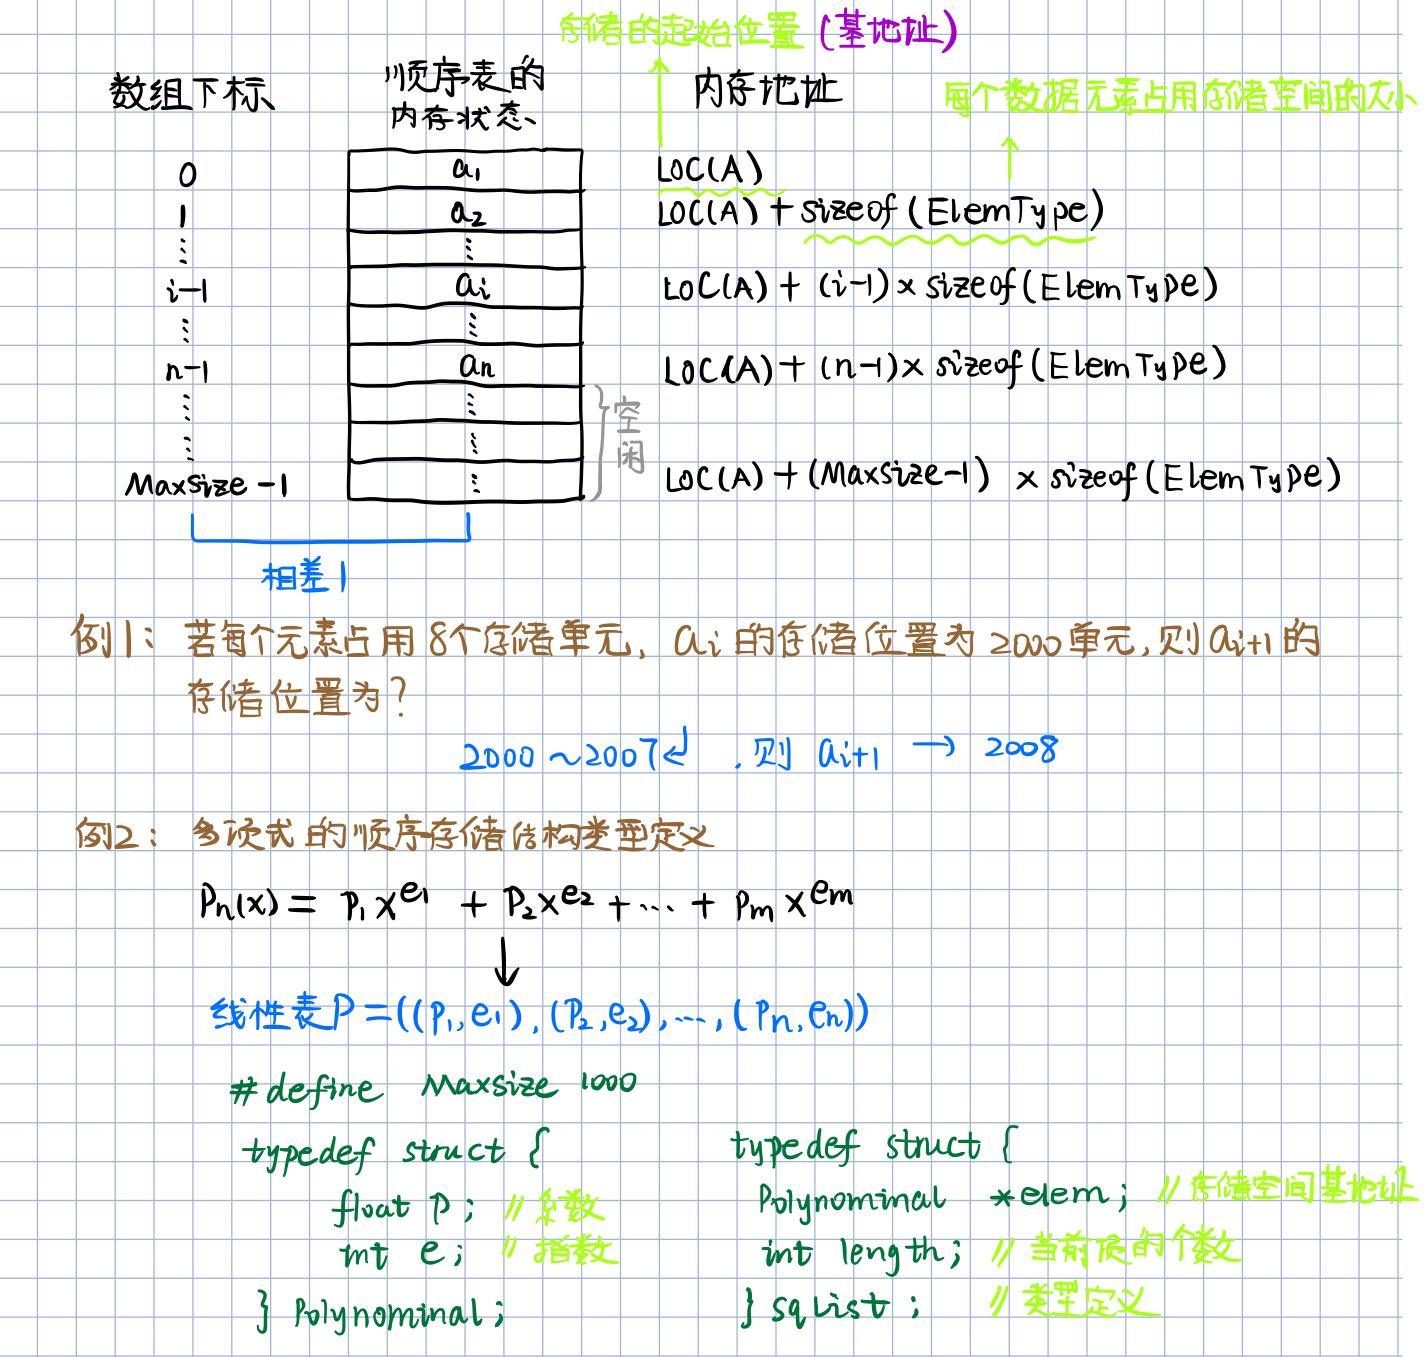 存储的起始位置(基地址)
数组下标 顺序表的 内存地址 每个数据元素占用存储空间的大小
内存状态
0 a₁ LOC(A)
1 a₂ LOC(A) + sizeof(ElemType)
⋮ ⋮
i-1 aᵢ LOC(A) + (i-1) × sizeof(ElemType)
⋮ ⋮
n-1 aₙ LOC(A) + (n-1) × sizeof(ElemType)
⋮ ⋮ 空闲
⋮ ⋮
Maxsize-1 ⋮ LOC(A) + (Maxsize-1) × sizeof(ElemType)
相差1
例1: 若每个元素占用8个存储单元, aᵢ的存储位置为2000单元,则aᵢ₊₁的
存储位置为?
2000~2007 ,则 aᵢ₊₁ → 2008
例2: 多项式的顺序存储结构类型定义
Pₙ(x) = P₁x^e₁ + P₂x^e₂ + … + Pₘx^eₘ
↓
线性表P=((P₁,e₁),(P₂,e₂),…,(Pₙ,eₙ))
#define Maxsize 1000
typedef struct {
float p; //系数
int e; //指数
} Polynominal;
typedef struct {
Polynominal *elem; //存储空间基地址
int length; //当前项的个数
} sqList; //类型定义